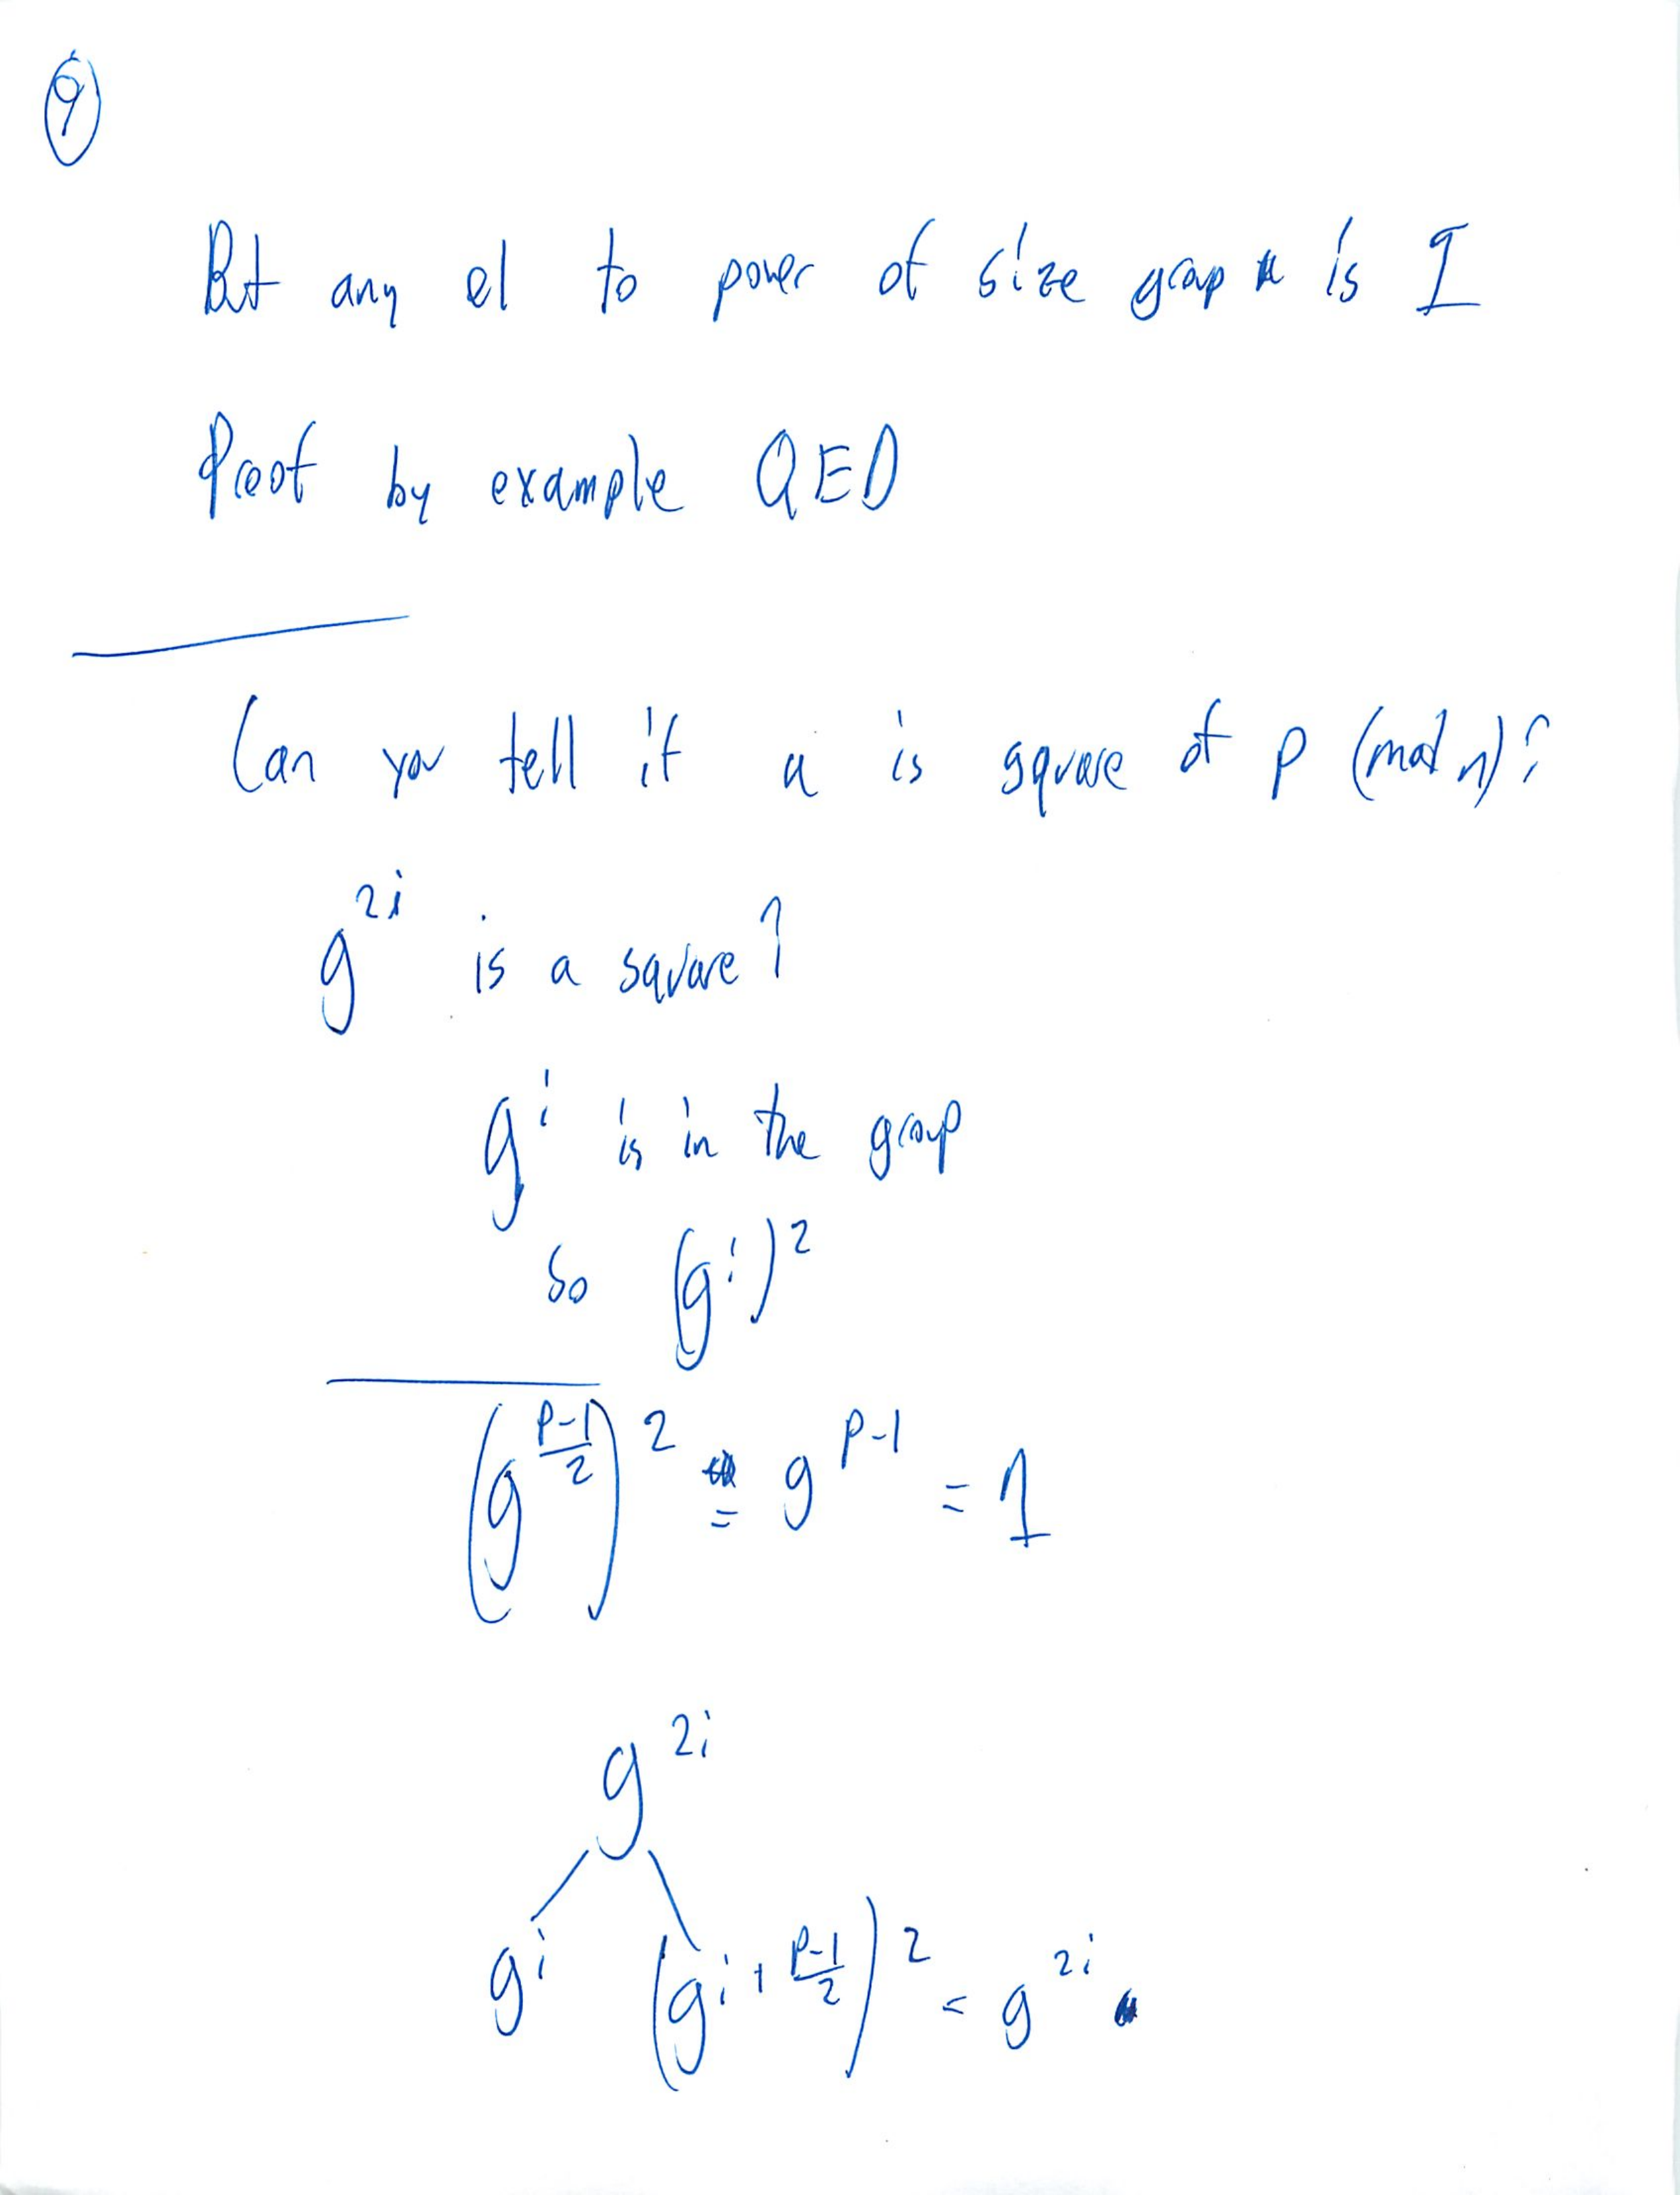 9
But any el to power of size group is I
Proof by example QED
Can you tell if a is square of p (mod n)?
g^{2i} is a square?
g^i is in the group
so (g^i)^2
(g^{\frac{p-1}{2}})^2 = g^{p-1} = 1
g^{2i}
g^i (g^{i+\frac{p-1}{2}})^2 = g^{2i}